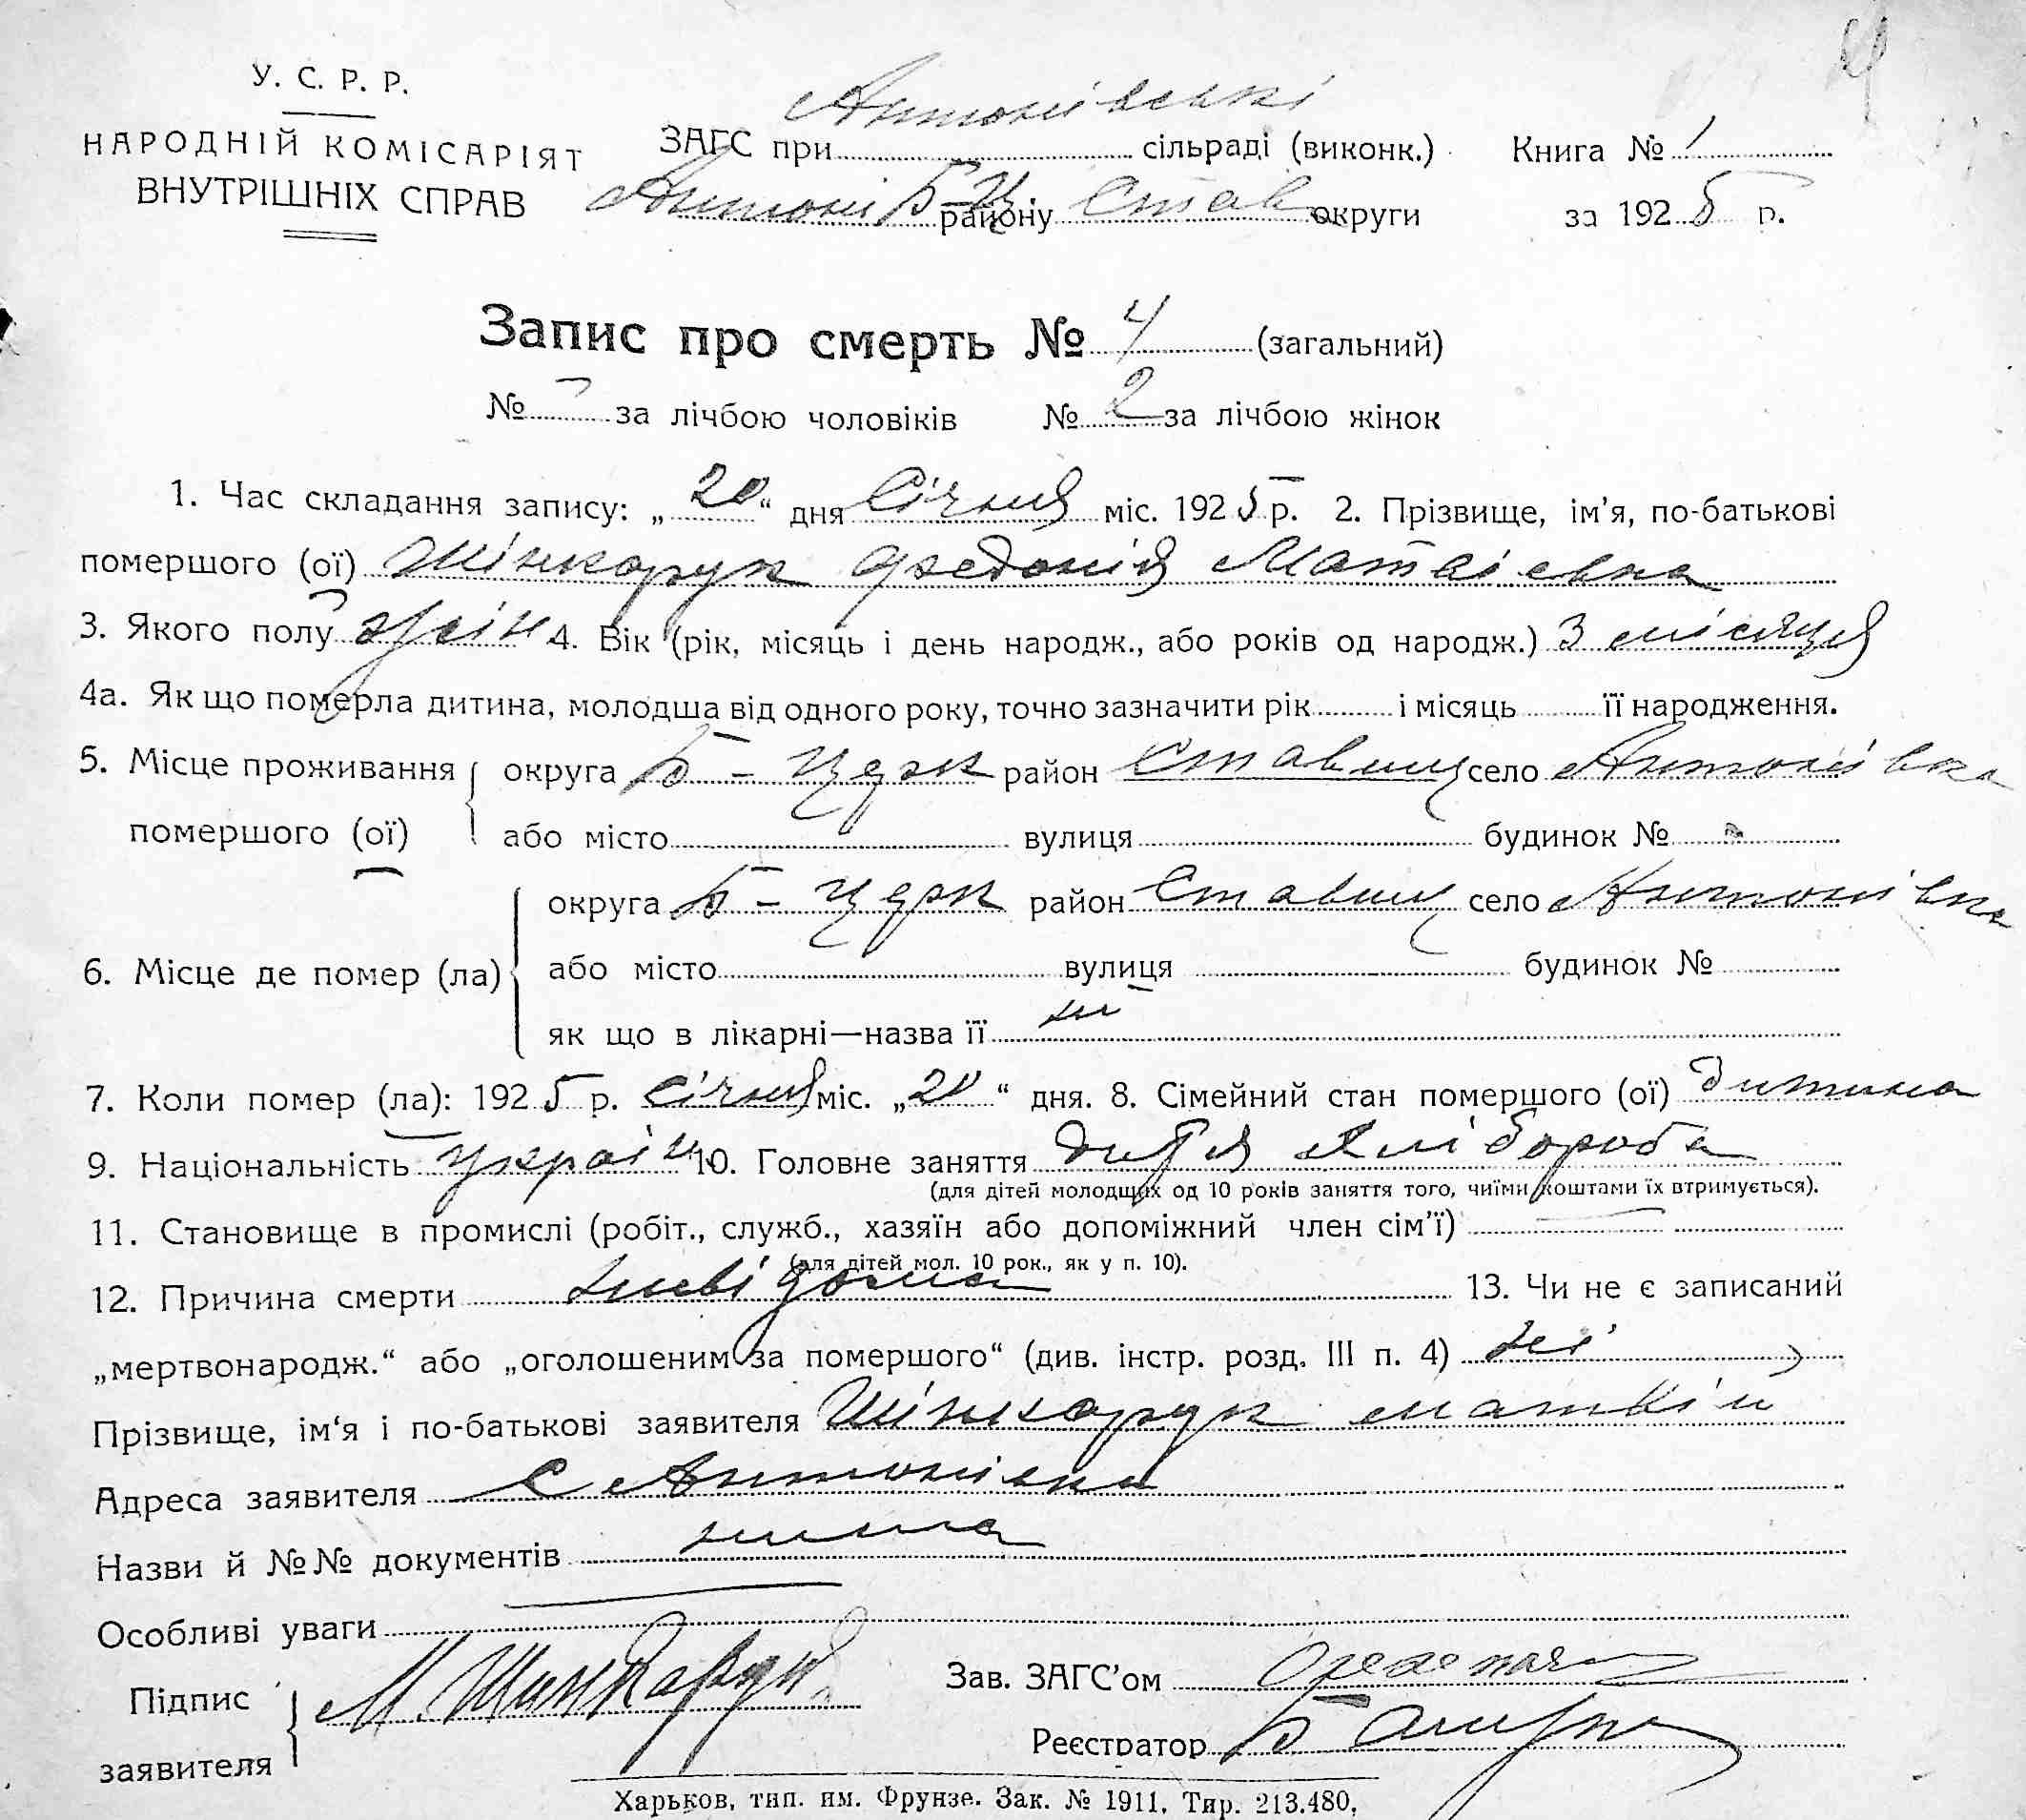 У. С. Р. Р.
НАРОДНІЙ КОМІСАРІЯТ
ВНУТРІШНІХ СПРАВ
ЗАГС при Антонівські сільраді (виконк.) Книга № 1
Б-Ц. району Став округи за 1925 р.
Запис про смерть № 4 (загальний)
№ — за лічбою чоловіків № 2 за лічбою жінок
1. Час складання запису: „20“ дня Січня міс. 1925 р. 2. Прізвище, ім’я, по-батькові
помершого (ої) Шінкарук Федонія Матвієвна
3. Якого полу жін 4. Вік (рік, місяць і день народж., або років од народж.) 3 місяця
4а. Як що померла дитина, молодша від одного року, точно зазначити рік і місяць її народження.
5. Місце проживання помершого (ої) округа Б-Церк район Ставищ село Антонівка
або місто вулиця будинок №
6. Місце де помер (ла) округа Б-Церк район Ставищ село Антонівка
або місто вулиця будинок №
як що в лікарні—назва її ні
7. Коли помер (ла): 1925 р. січня міс. „20“ дня. 8. Сімейний стан помершого (ої) дитина
9. Національність україн 10. Головне заняття дитя хлібороба
(для дітей молодших од 10 років заняття того, чиїми коштами їх втримується).
11. Становище в промислі (робіт., служб., хазяїн або допоміжний член сім’ї) —
(для дітей мол. 10 рок., як у п. 10).
12. Причина смерти невідома 13. Чи не є записаний
„мертвонародж.“ або „оголошеним за помершого“ (див. інстр. розд. III п. 4) ні
Прізвище, ім‘я і по-батькові заявителя Шінкарук матвій
Адреса заявителя С Антонівка
Назви й №№ документів нима
Особливі уваги —
Підпис заявителя М. Шинкарук
Зав. ЗАГС’ом
Реєстратор
Харьков, тип. им. Фрунзе. Зак. № 1911. Тир. 213.480.